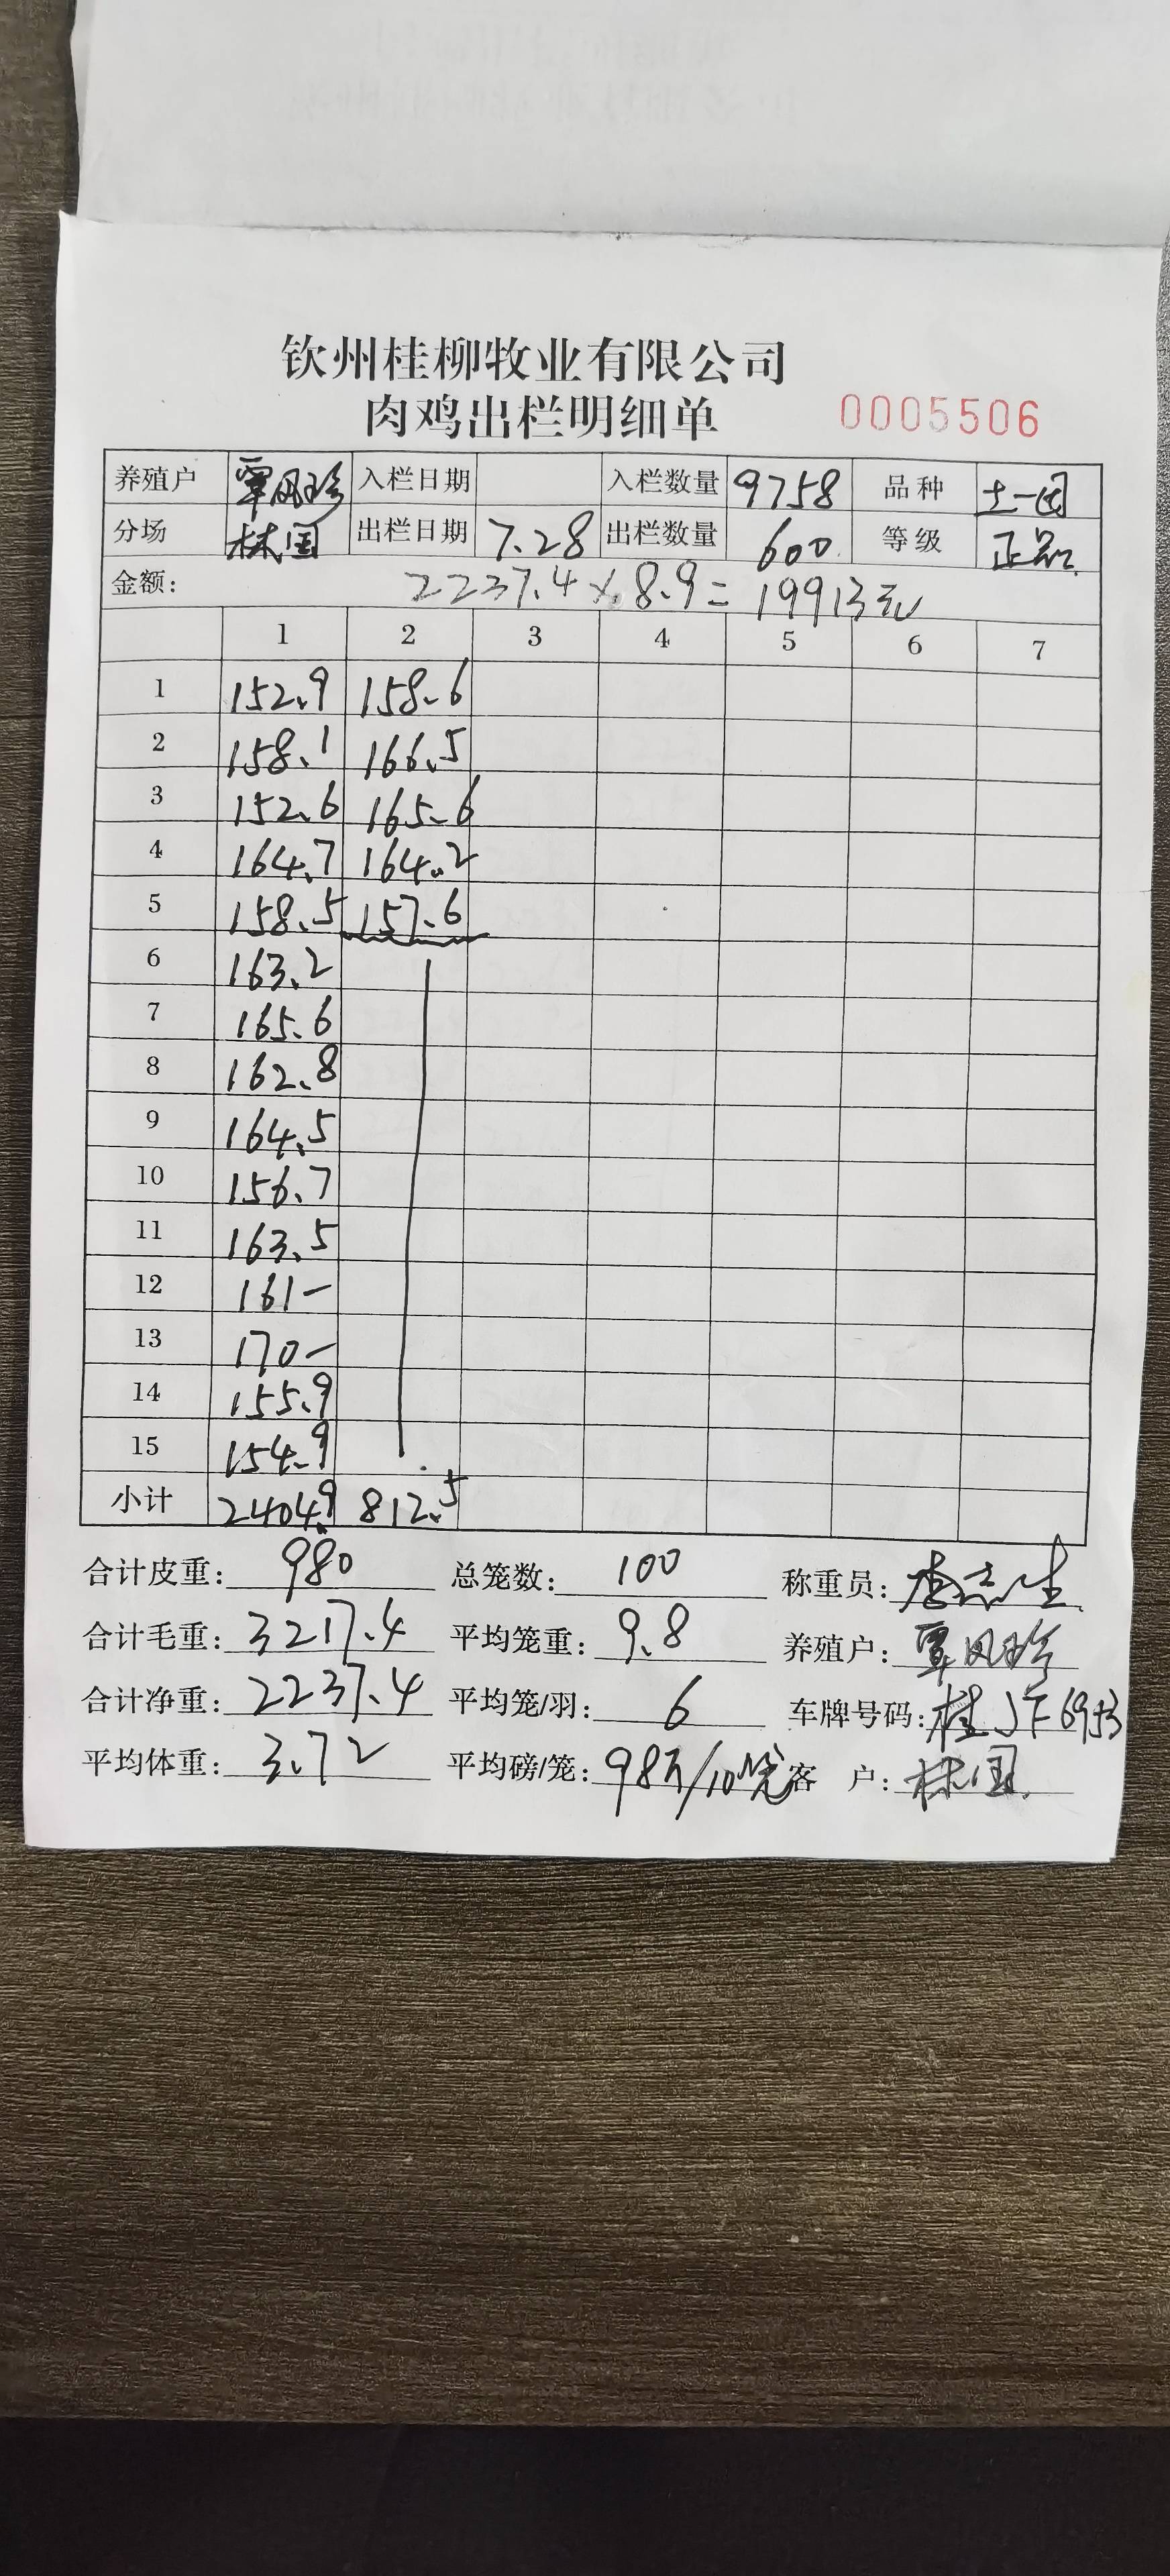 钦州桂柳牧业有限公司
肉鸡出栏明细单 0005506
养殖户 覃凤珍 入栏日期 入栏数量 9758 品种 土一
分场 林国 出栏日期 7.28 出栏数量 600 等级 正品
金额: 2237.4×8.9=19913元
1 2 3 4 5 6 7
1 152.9 158.6
2 158.1 166.5
3 152.6 165.6
4 164.7 164.2
5 158.5 157.6
6 163.2
7 165.6
8 162.8
9 164.5
10 156.7
11 163.5
12 161-
13 170-
14 155.9
15 154.9
小计 2404.9 812.5
合计皮重: 980 总笼数: 100 称重员: 李志生
合计毛重: 3217.4 平均笼重: 9.8 养殖户: 覃凤珍
合计净重: 2237.4 平均笼/羽: 6 车牌号码: 桂
平均体重: 3.72 平均磅/笼: 98斤/10笼 客 户: 林国